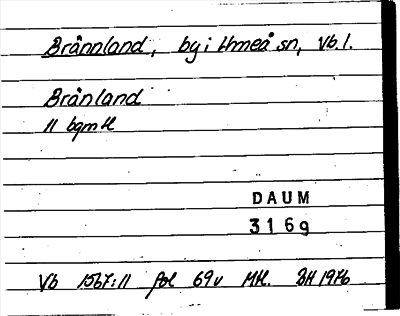 Brännland, by i Umeå sn, Vb. l.
Brånland
11 bgmH
DAUM
3169
Vb 1567:11 fol 69v MH. BH 1976